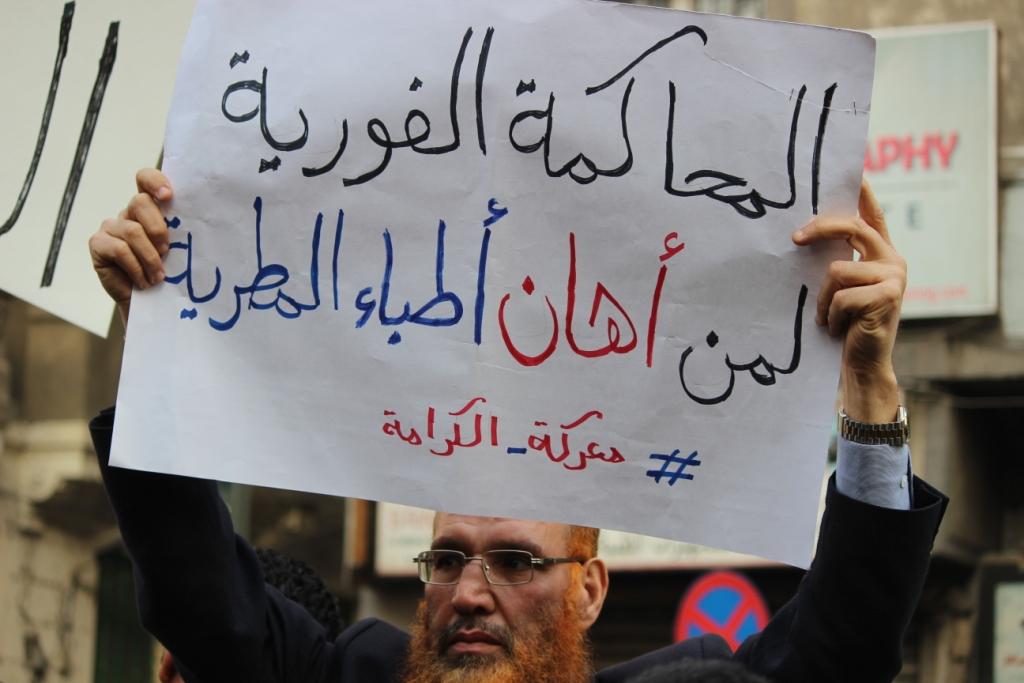 المحاكمة الفورية
لمن أهان أطباء المطرية
#معركة_الكرامة
ال
APHY